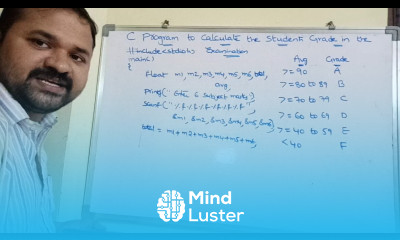 C Program to Calculate the Student Grade in the
#include<stdio.h> Examination
main() Avg Grade
{
float m1, m2, m3, m4, m5, m6, total, >=90 A
avg; >=80 to 89 B
printf("Enter 6 subject marks"); >=70 to 79 C
scanf("%f%f%f%f%f%f", >=60 to 69 D
&m1, &m2, &m3, &m4, &m5, &m6); >=40 to 59 E
total = m1+m2+m3+m4+m5+m6; <40 F
Mind
Luster